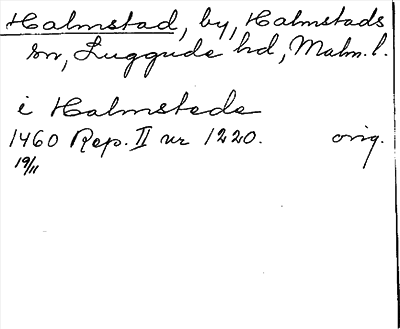 Halmstad, by, Halmstads
sn, Luggude hd, Malm. l.
i Halmstede
1460 Rep. II nr 1220. orig.
19/11